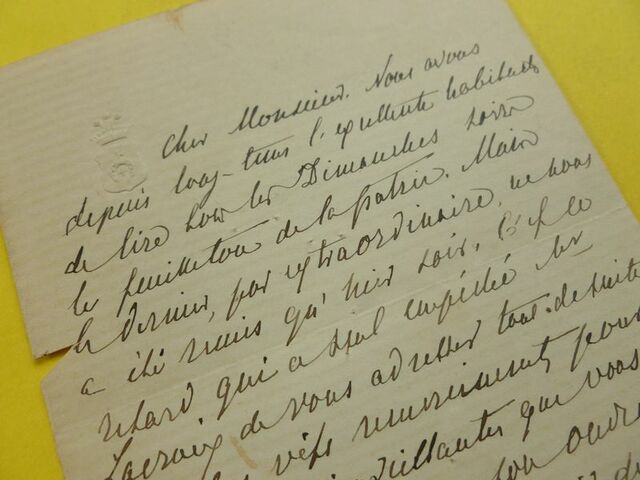 Cher Monsieur. Nous avons
depuis long-tems l'excellente habitude
de lire tous les Dimanches soirs
le feuilleton de la patrie. Mais
le dernier, par extraordinaire, ne nous
a été remis qu'hier soir. C'est ce
retard qui a seul empêché Mr
Lacroix de vous adresser tout-de-suite
vifs remerciments pour
que vous
son